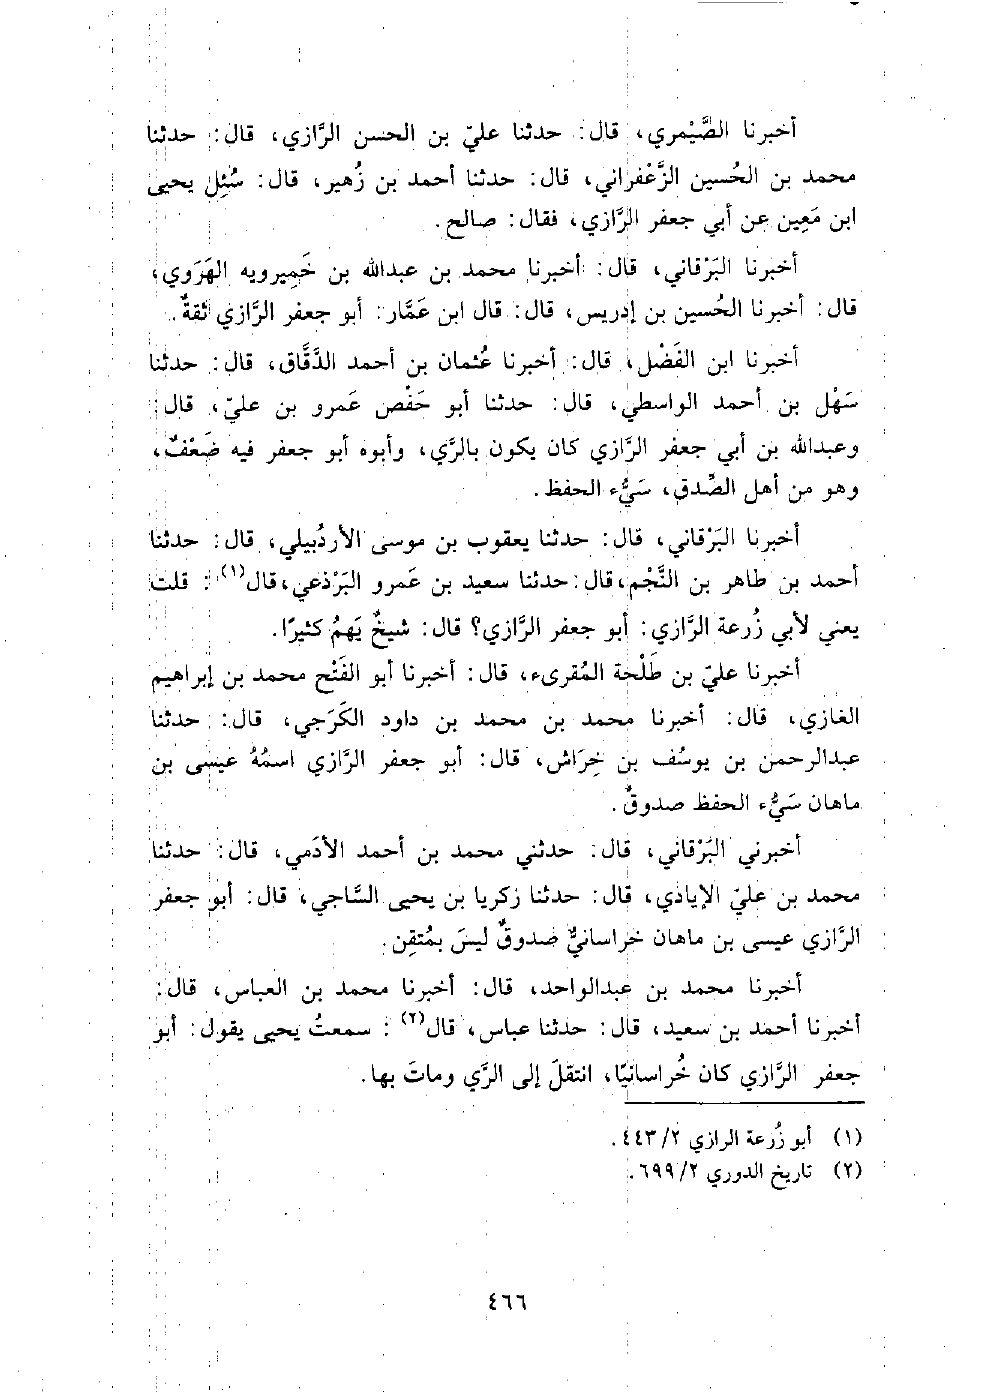 أخبرنا الصَّيْمري، قال: حدثنا عليّ بن الحسن الرَّازي، قال: حدثنا
محمد بن الحُسين الزَّعْفراني، قال: حدثنا أحمد بن زُهير، قال: سُئِل يحيى
ابن مَعِين عن أبي جعفر الرَّازي، فقال: صالح.
أخبرنا البَرْقاني، قال: أخبرنا محمد بن عبدالله بن خَمِيرويه الهَرَوي،
قال: أخبرنا الحُسين بن إدريس، قال: قال ابن عَمَّار: أبو جعفر الرَّازي ثقةٌ.
أخبرنا ابن الفَضْل، قال: أخبرنا عُثمان بن أحمد الدَّقَّاق، قال: حدثنا
سَهْل بن أحمد الواسطي، قال: حدثنا أبو حَفْص عَمرو بن عليّ، قال:
وعبدالله بن أبي جعفر الرَّازي كان يكون بالرَّي، وأبوه أبو جعفر فيه ضَعْفٌ،
وهو من أهل الصِّدق، سَيُّء الحفظ.
أخبرنا البَرْقاني، قال: حدثنا يعقوب بن موسى الأردُبيلي، قال: حدثنا
أحمد بن طاهر بن النَّجْم، قال: حدثنا سعيد بن عَمرو البَرْذعي، قال(١): قلت
يعني لأبي زُرعة الرَّازي: أبو جعفر الرَّازي؟ قال: شيخٌ يَهِمُ كثيرًا.
أخبرنا عليّ بن طَلْحة المُقرىء، قال: أخبرنا أبو الفَتْح محمد بن إبراهيم
الغازي، قال: أخبرنا محمد بن محمد بن داود الكَرَجي، قال: حدثنا
عبدالرحمن بن يوسُف بن خِرَاش، قال: أبو جعفر الرَّازي اسمُهُ عيسى بن
ماهان سَيُّء الحفظ صدوقٌ.
أخبرني البَرْقاني، قال: حدثني محمد بن أحمد الأدَمي، قال: حدثنا
محمد بن عليّ الإيادي، قال: حدثنا زكريا بن يحيى السَّاجي، قال: أبو جعفر
الرَّازي عيسى بن ماهان خراسانيٌّ صدوقٌ ليسَ بمُتقِن.
أخبرنا محمد بن عبدالواحد، قال: أخبرنا محمد بن العباس، قال:
أخبرنا أحمد بن سعيد، قال: حدثنا عباس، قال(٢): سمعتُ يحيى يقول: أبو
جعفر الرَّازي كان خُراسانيًا، انتقلَ إلى الرَّي وماتَ بها.
(١) أبو زُرعة الرازي ٤٤٣/٢.
(٢) تاريخ الدوري ٦٩٩/٢.
٤٦٦